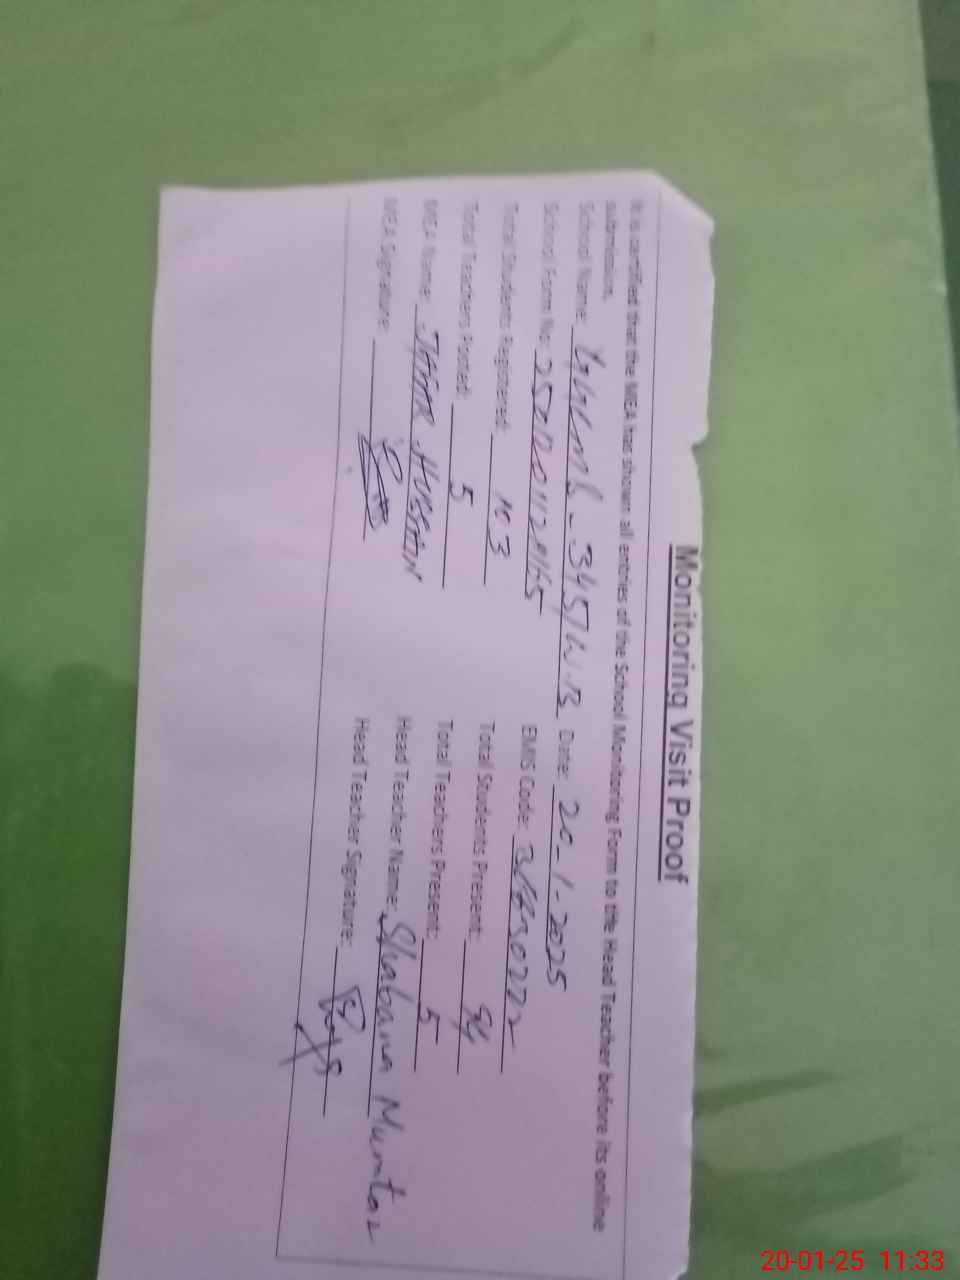 Monitoring Visit Proof
It is certified that the MEA has shown all entries of the School Monitoring Form to the Head Teacher before its online
submission.
School Name: 345/W.B Date: 20-1-2025
School Form No: EMIS Code:
Total Students Registered: 103 Total Students Present: 94
Total Teachers Posted: 5 Total Teachers Present: 5
MEA Name: JAFAR HUSSAIN Head Teacher Name: Shabana Mumtaz
MEA Signature: Head Teacher Signature:
20-01-25 11:33